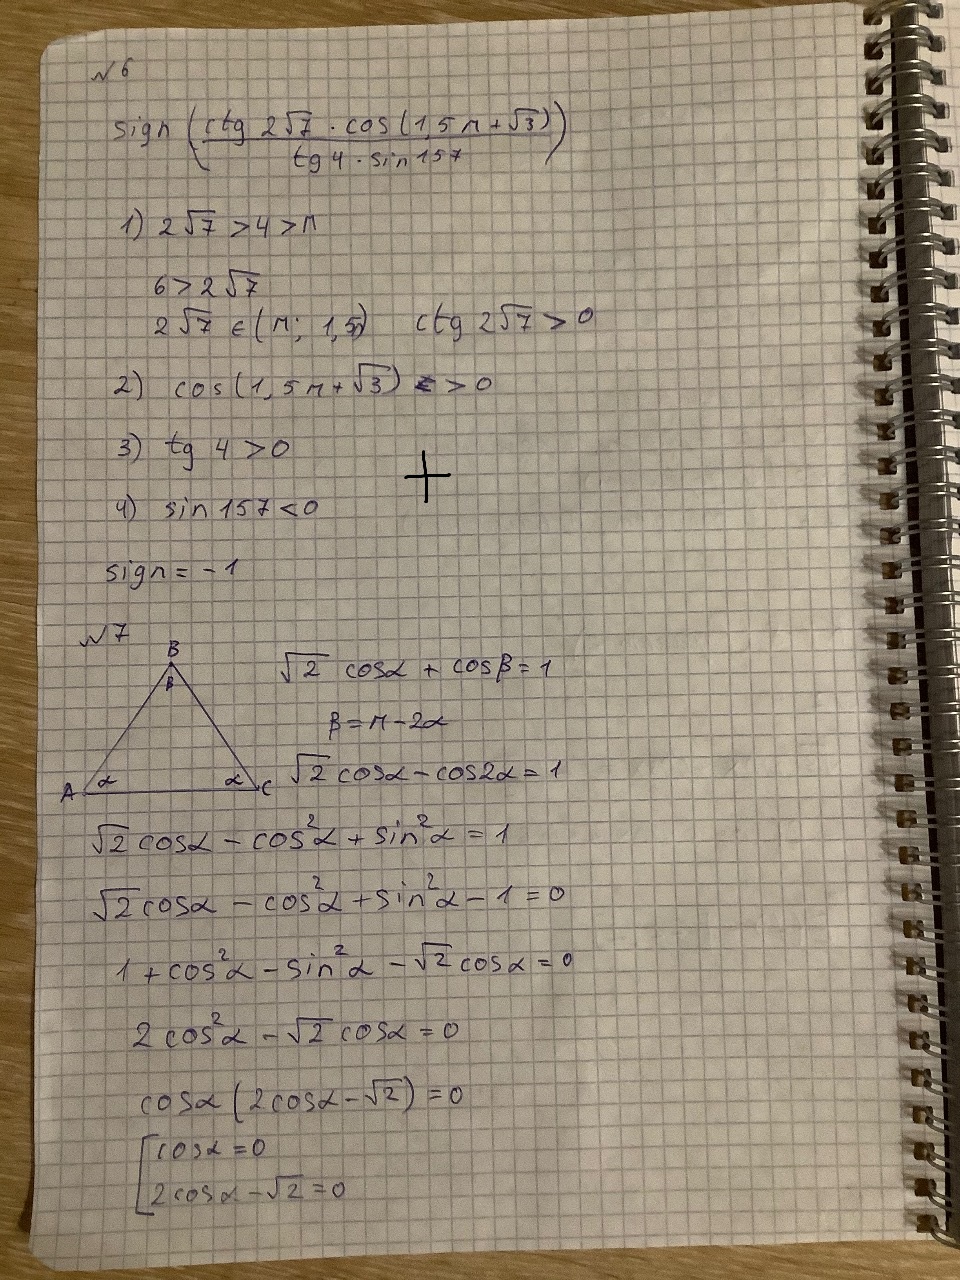 №6
sign (ctg 2√7 · cos(1,5π+√3) / tg 4 · sin 157)
1) 2√7 > 4 > π
6 > 2√7
2√7 ∈ (π; 1,5π) ctg 2√7 > 0
2) cos(1,5π+√3) > 0
3) tg 4 > 0
+
4) sin 157 < 0
sign = -1
№7
B
β
√2 cosα + cosβ = 1
β = π - 2α
A α α C
√2 cosα - cos2α = 1
√2 cosα - cos²α + sin²α = 1
√2 cosα - cos²α + sin²α - 1 = 0
1 + cos²α - sin²α - √2 cosα = 0
2 cos²α - √2 cosα = 0
cosα (2cosα - √2) = 0
[cosα = 0
2cosα - √2 = 0